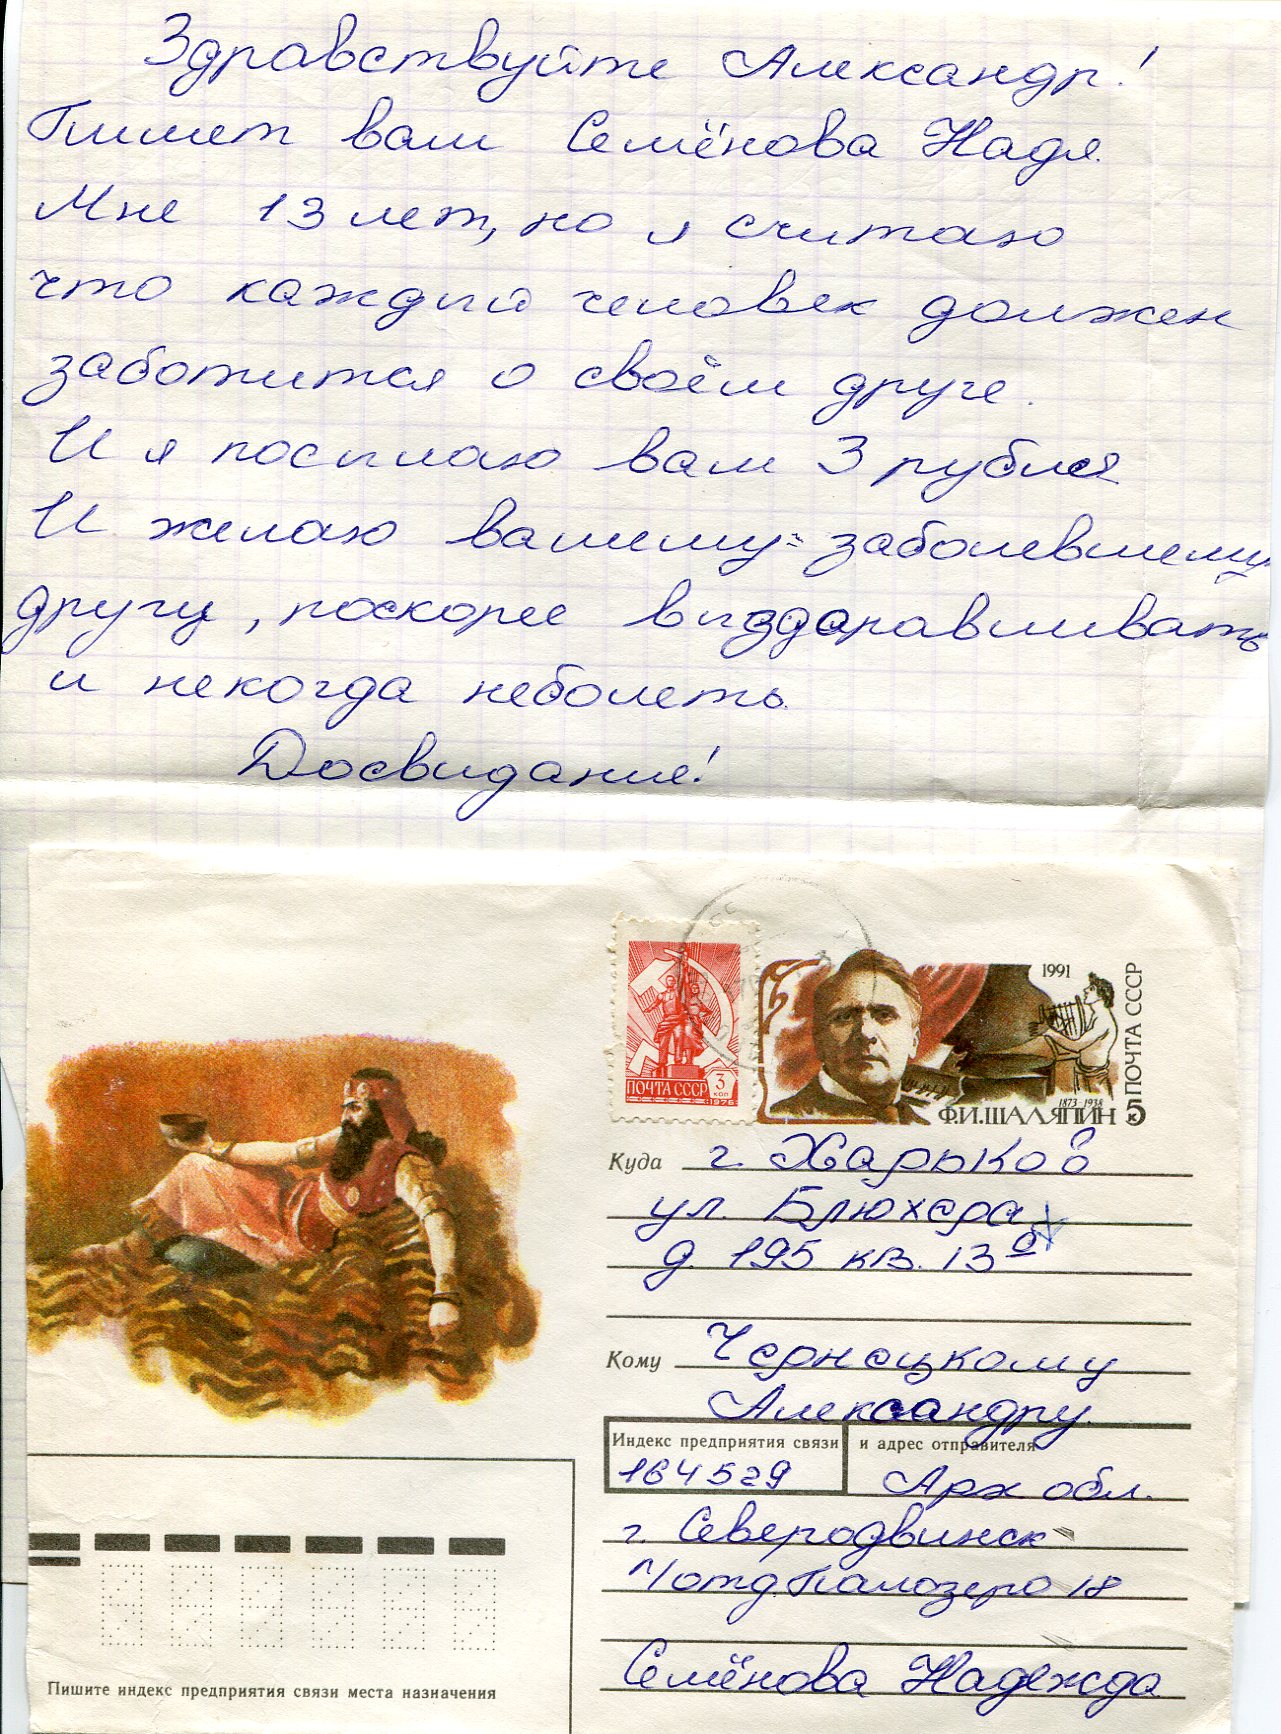 Здравствуйте Александр!
Пишет вам Семёнова Надя.
Мне 13 лет, но я считаю
что каждый человек должен
заботится о своём друге.
И я посылаю вам 3 рубля
И желаю вашему заболевшему
другу, поскорее выздоравливать
и некогда неболеть.
Досвидание!
1991
ПОЧТА СССР
ПОЧТА СССР 3 КОП
1976
1873-1938
Ф.И.ШАЛЯПИН 5 к
Куда г. Харьков
ул. Блюхера
д. 195 кв. 13
Кому Чернецкому
Александру.
Индекс предприятия связи и адрес отправителя
164529 Арх обл.
г. Северодвинск
п/отд. Палозеро 18
Семёнова Надежда
Пишите индекс предприятия связи места назначения